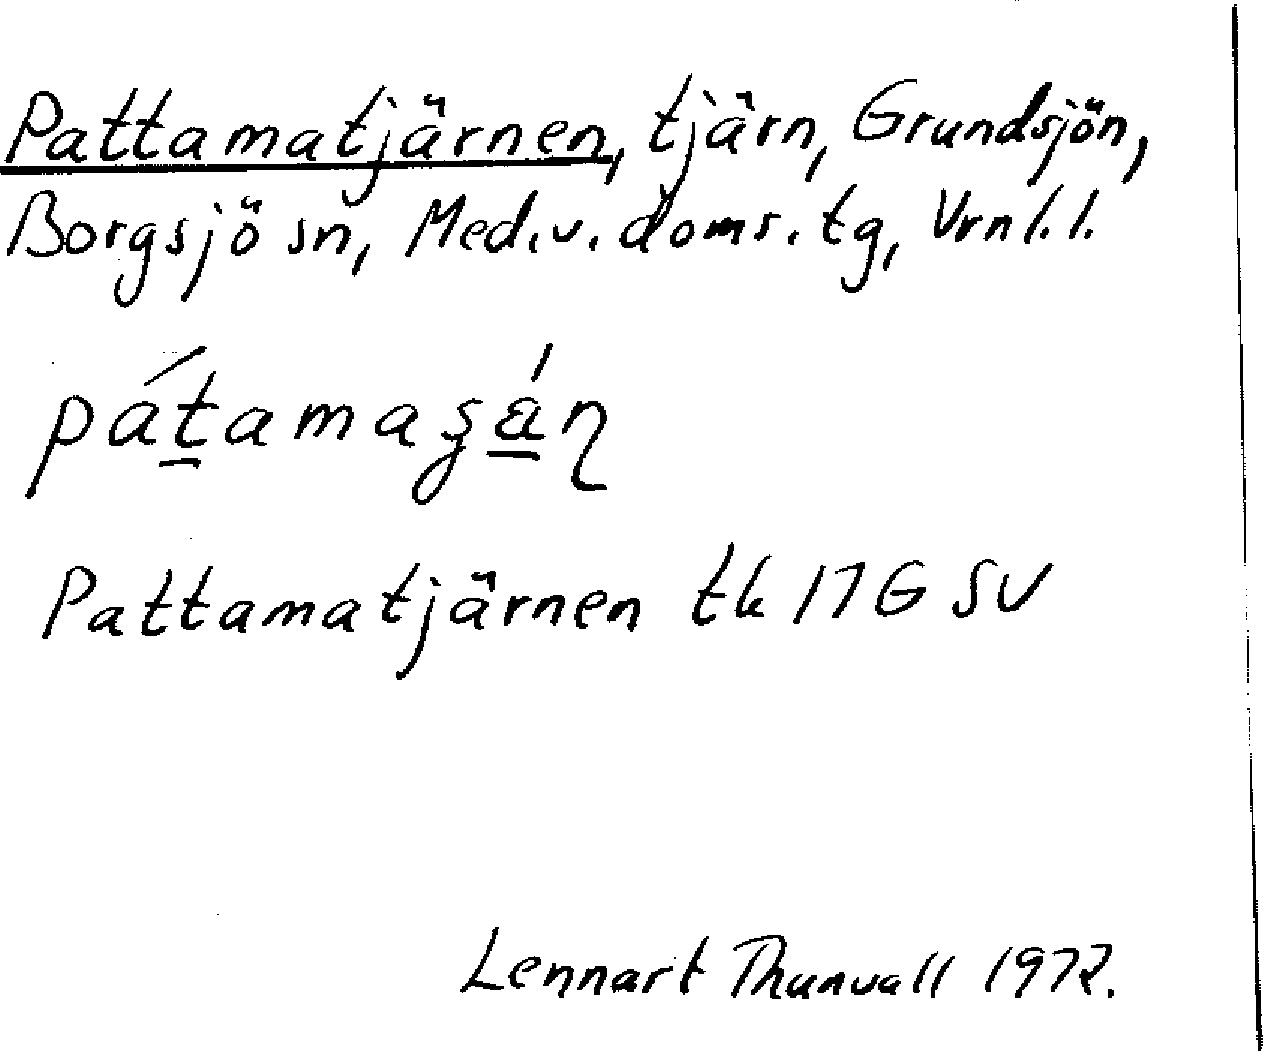 Pattamatjärnen, tjärn, Grundsjön,
Borgsjö sn, Med.v. doms.tg, Vrnl.l.
Pattamatjärnen tk 17G SV
Lennart Thunvall 1972.